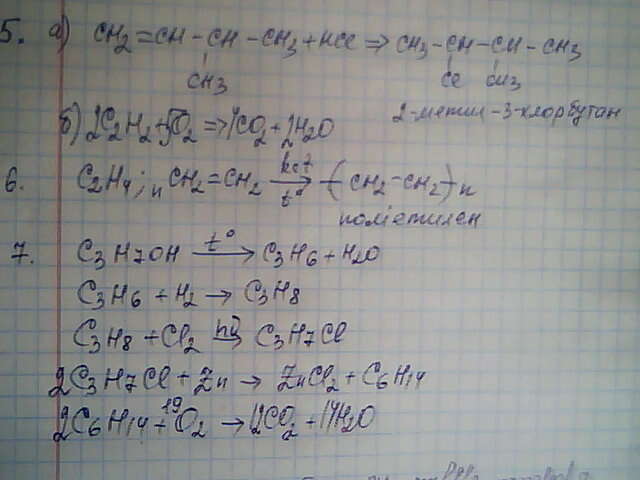 5. а) CH2=CH-CH-CH3+HCl⇒CH3-CH-CH-CH3
CH3 Cl CH3
2-метил-3-хлорбутан
б) 2C2H2+5O2⇒4CO2+2H2O
6. C2H4; nCH2=CH2 kat t° → (-CH2-CH2-)n
поліетилен
7. C3H7OH t° → C3H6+H2O
C3H6+H2→C3H8
C3H8+Cl2 hν → C3H7Cl
2C3H7Cl+Zn→ZnCl2+C6H14
2C6H14+19O2→12CO2+14H2O